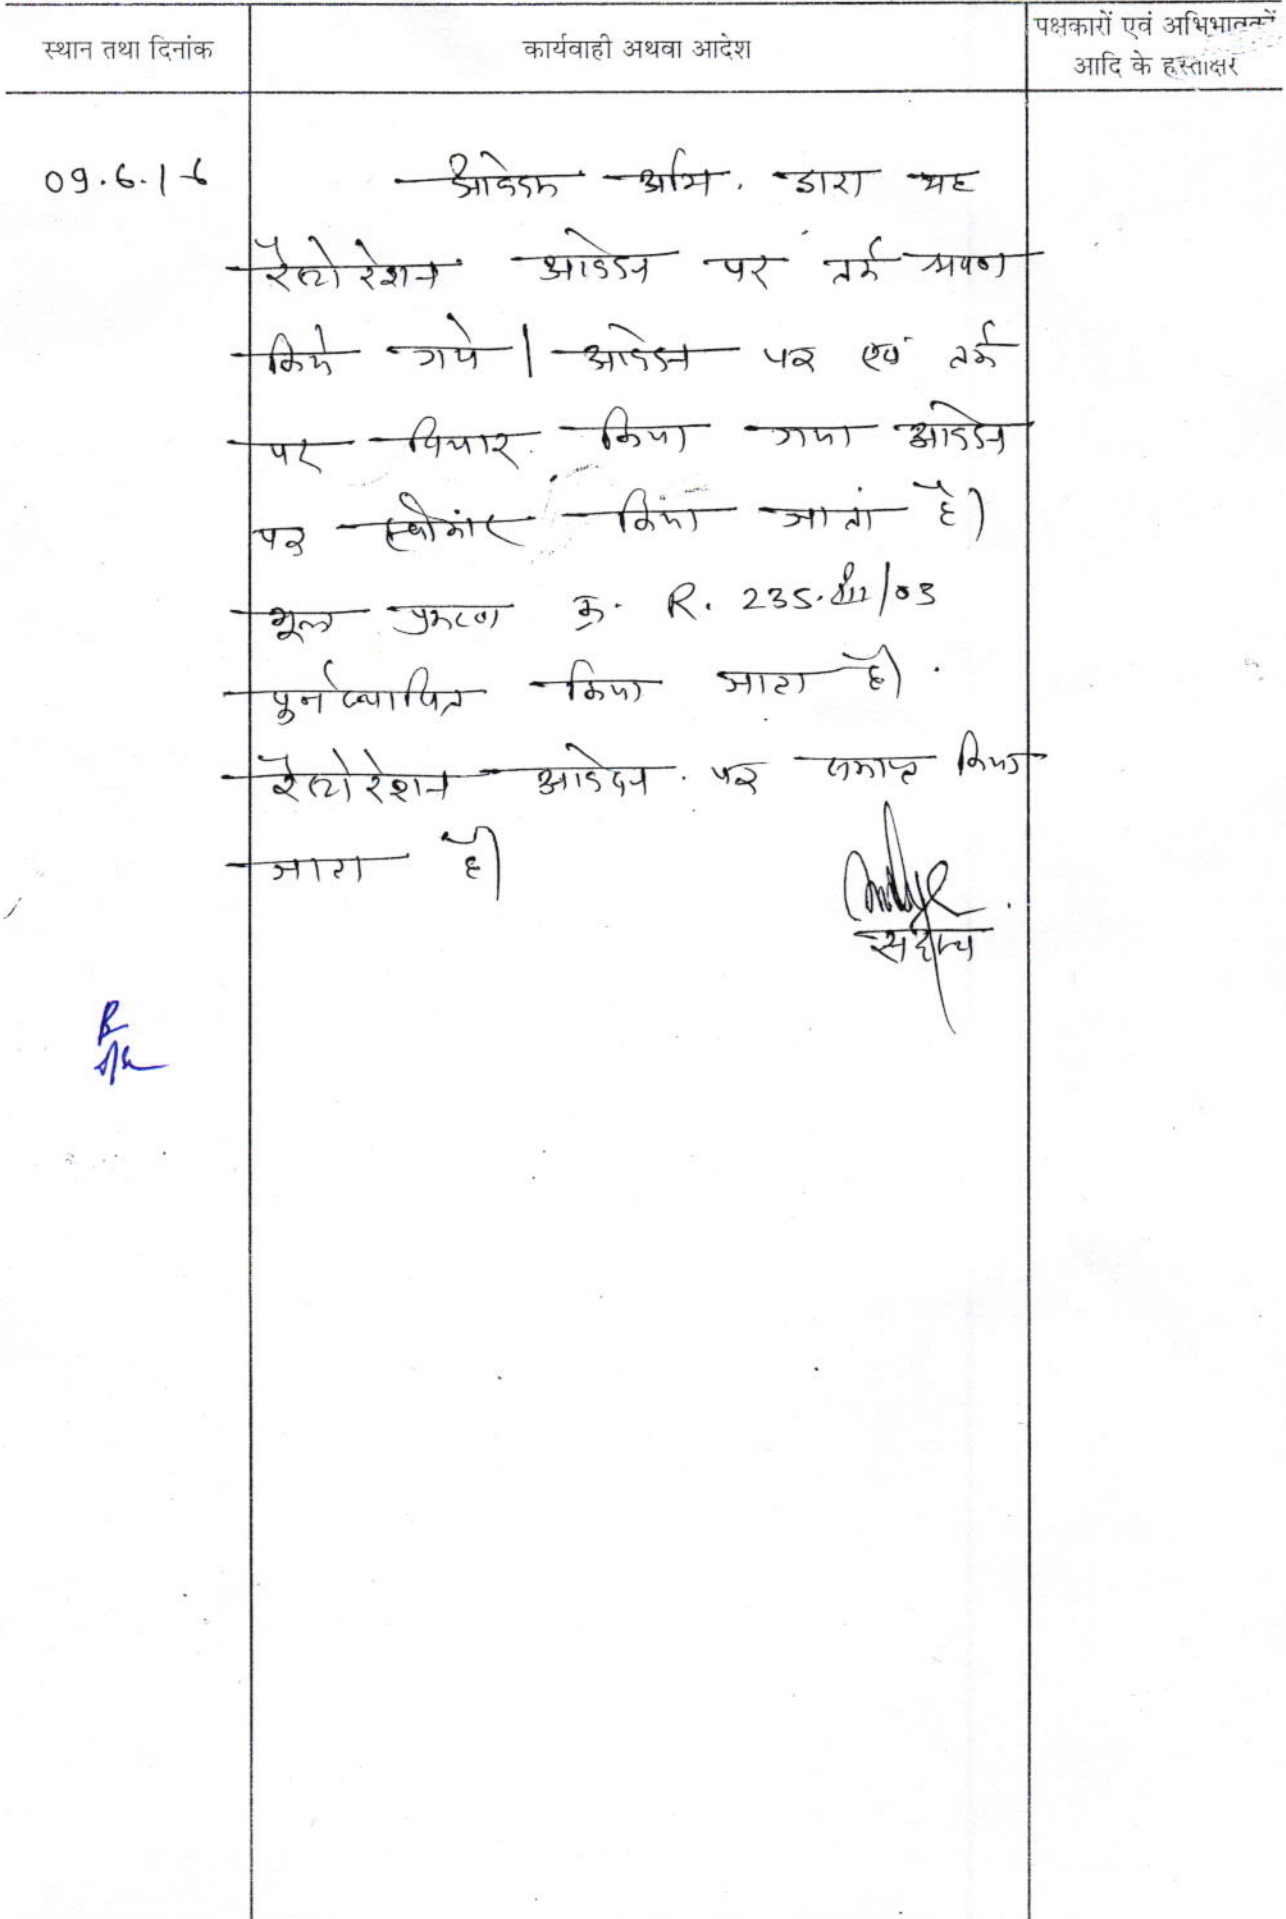 स्थान तथा दिनांक
कार्यवाही अथवा आदेश
पक्षकारों एवं अभिभाषकों
आदि के हस्ताक्षर
09.6.16
आवेदक अभि. द्वारा यह
रेस्टोरेशन आवेदन पर तर्क श्रवण
किये गये। आवेदन पत्र एवं तर्क
पर विचार किया गया आवेदन
पत्र स्वीकार किया जाता है।
मूल प्रकरण क्र. R. 235. III/03
पुर्नस्थापित किया जाता है।
रेस्टोरेशन आवेदन पत्र समाप्त किया
जाता है।
सदस्य